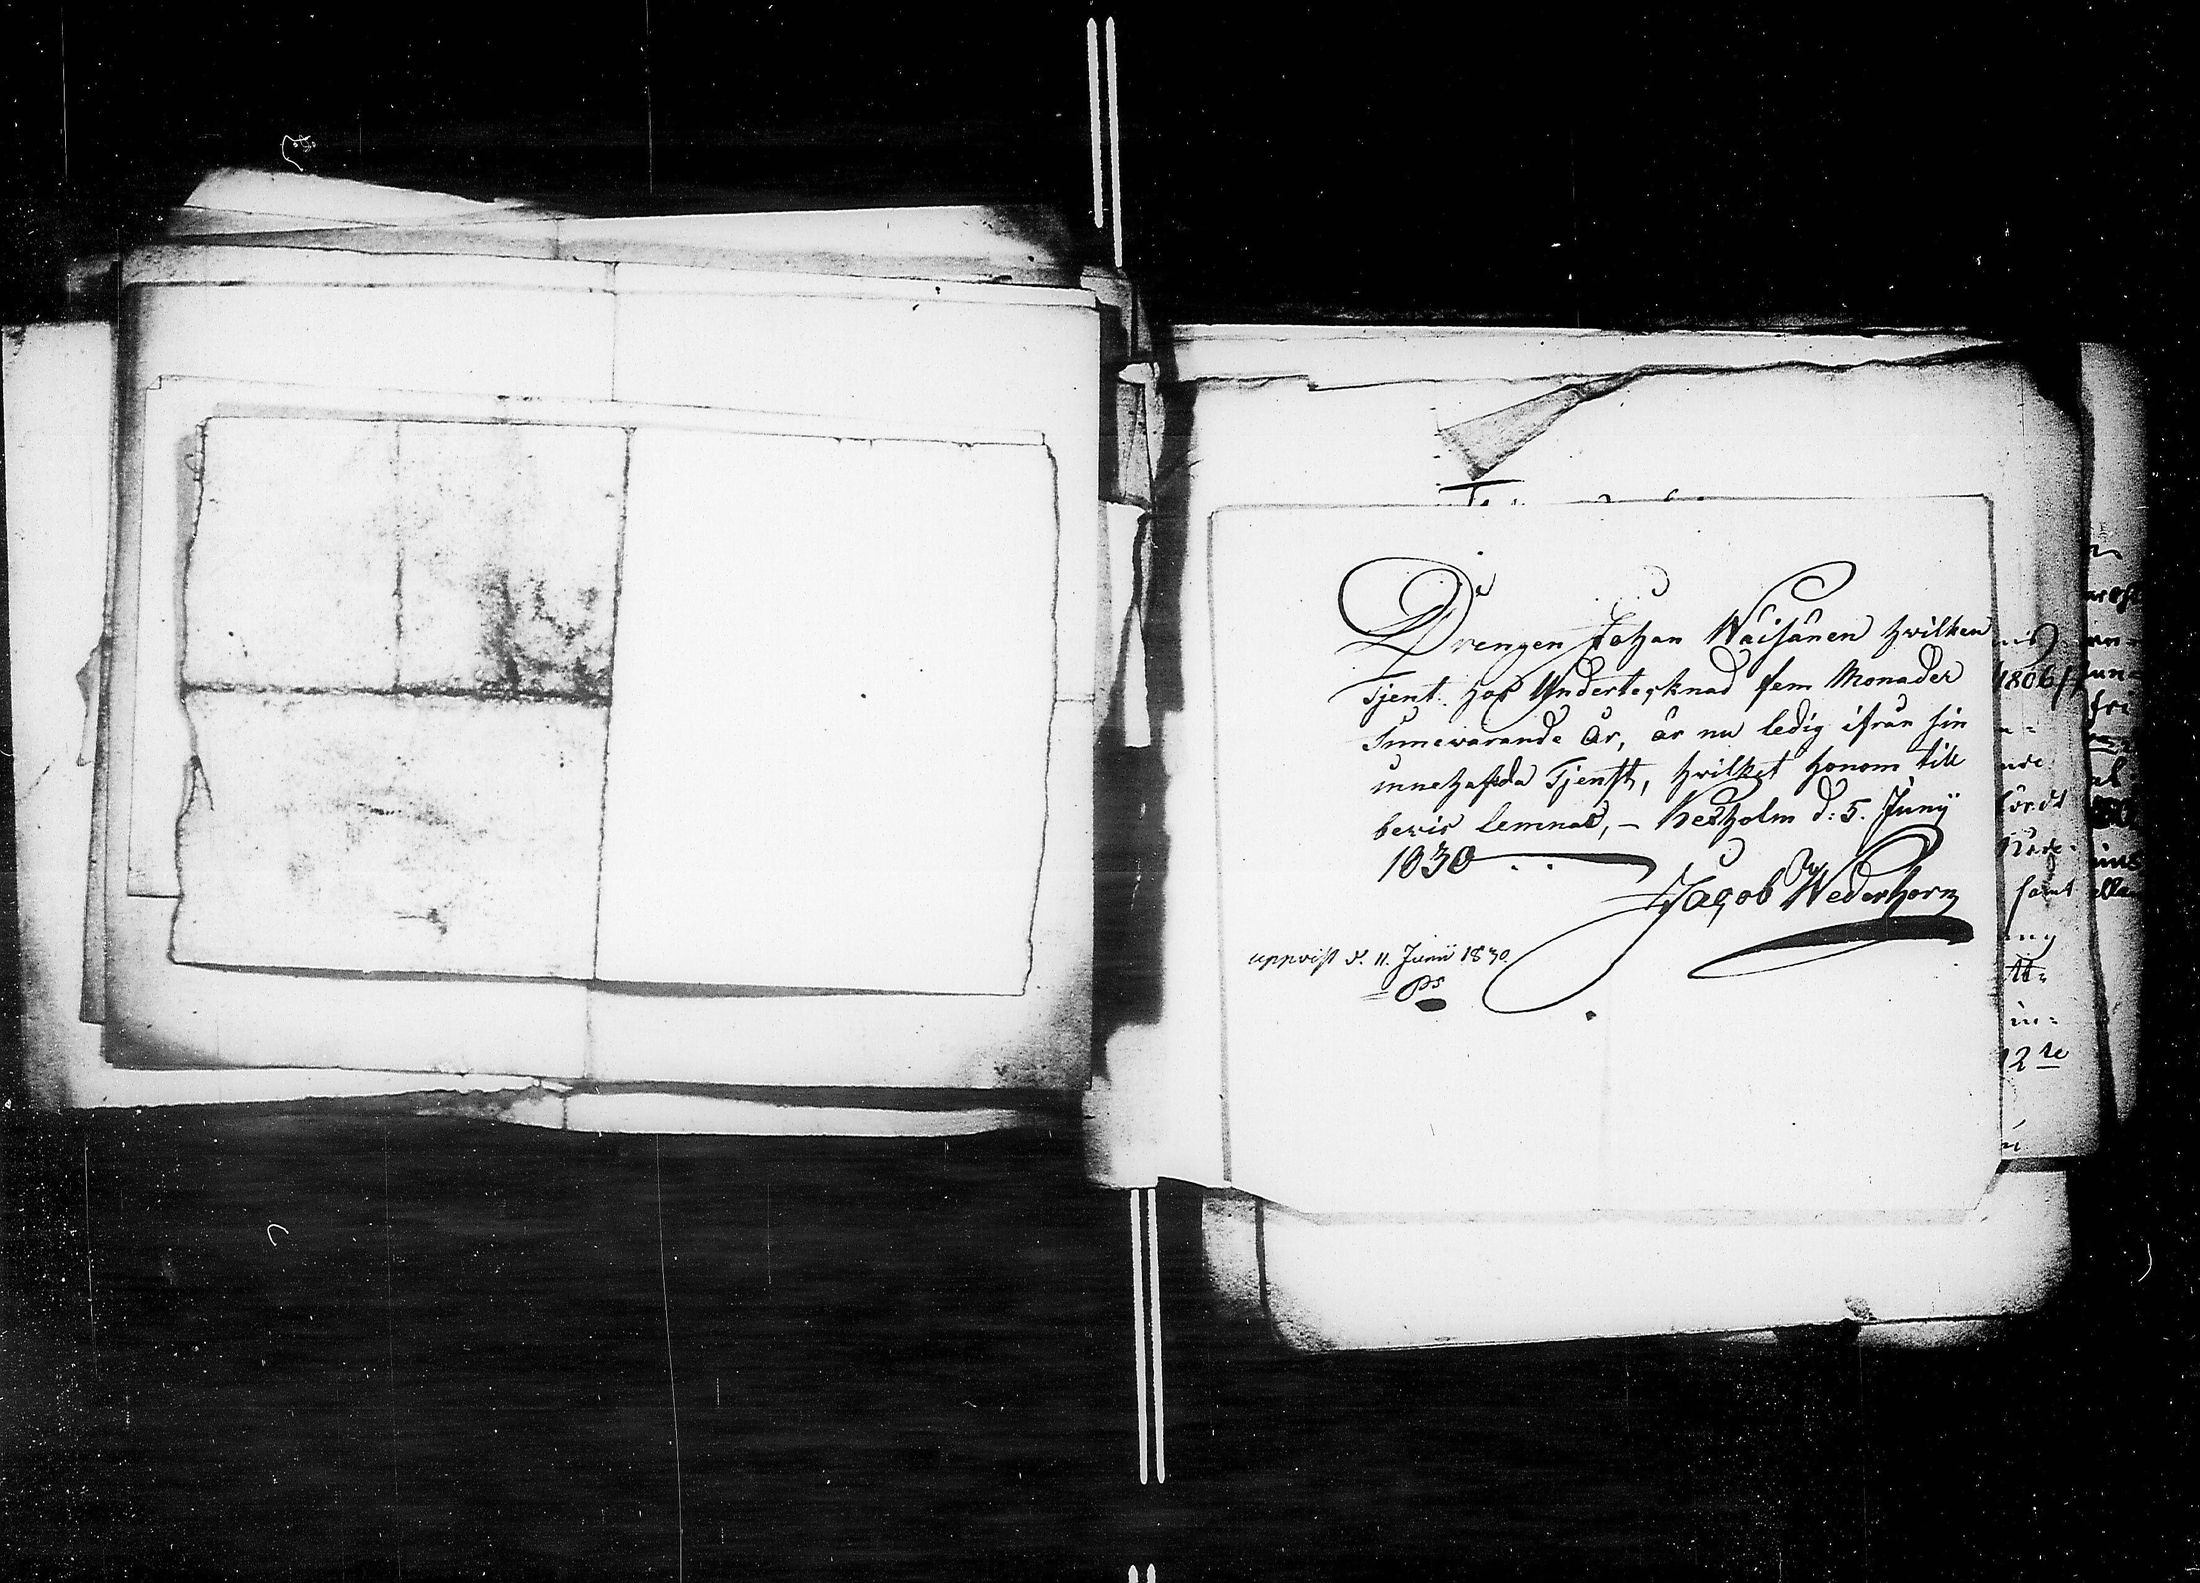 Drengen Johan Wäisänen hvilken
Tjent hos Undertecknad fem Monader
Innewarande År, är nu ledig ifrån sin
innehafda Tjenst, hvilket honom till
bevis lemnas, – Kexholm d: 5. Junÿ
1830
Jacob Wederhorn
uppvist d. 11. Junii 1830.
1806
samt
in=
12te